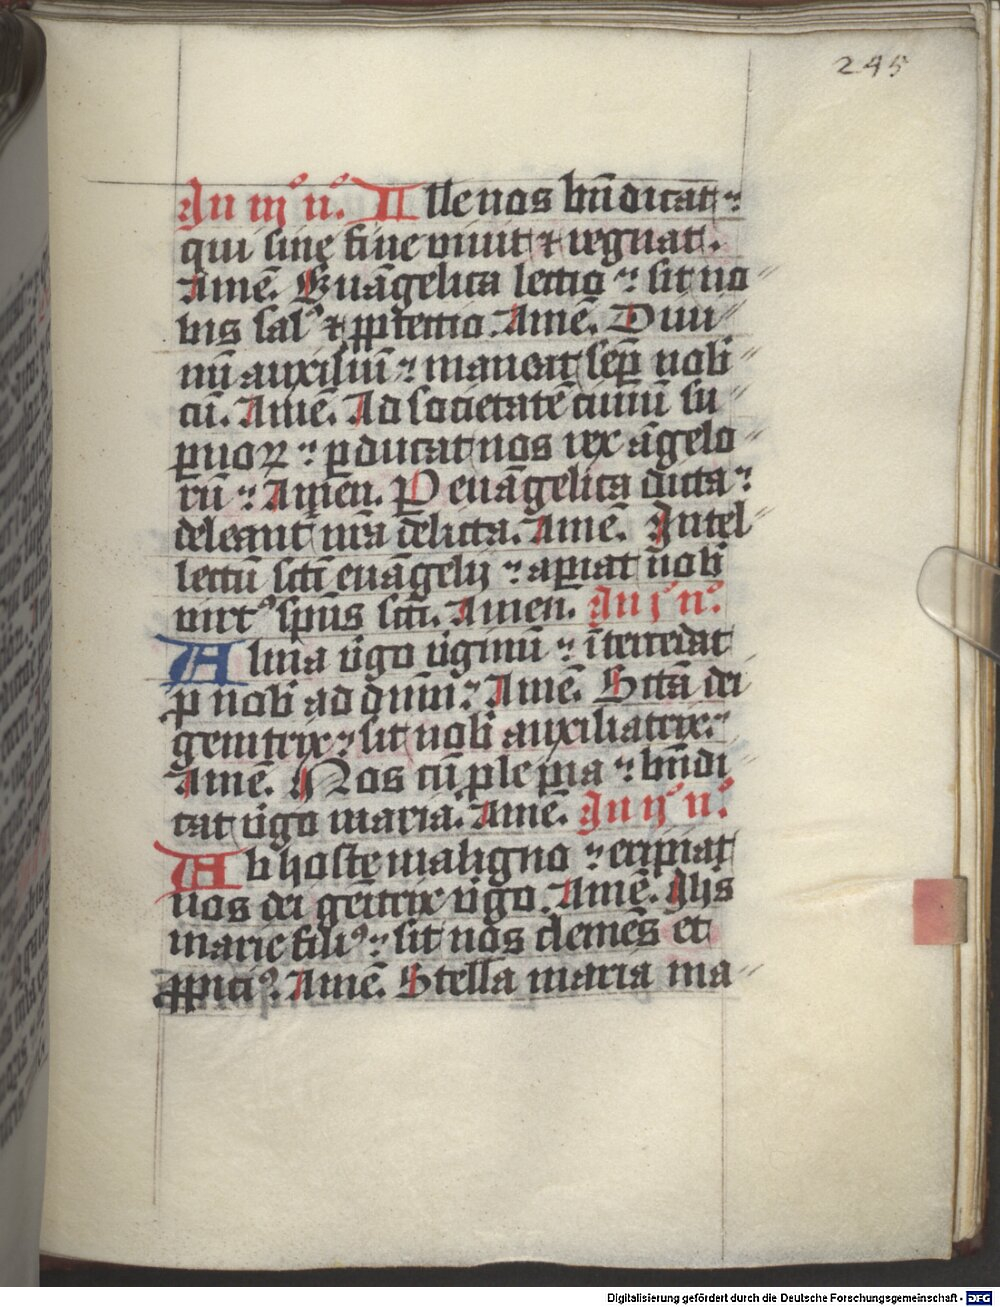 245
In iij° n°. Ille nos bn̄dicat :
qui sine fine viuit ⁊ regnat .
Amē. Euāgelica lectio : sit no
bis sal⁹ ⁊ ꝓtectio. Amē. Diui
nū auxiliū : maneat sēp nobi
cū. Amē. Ad societatē ciuiū su
ꝑnoꝝ : ꝑducat nos rex āgelo
rū : Amen. P euāgelica dicta :
deleant̄ nr̄a delicta. Amē. Intel
lectū sctī euāgelij : aꝑiat nob̄
virt⁹ spūs sctī. Amen. In j° n°.
Alma v̄go v̄ginū : ītercedat
ꝓ nob̄ ad dnm̄ : Amē. Sctā dei
genitrix : sit nob̄ auxiliatrix :
Amē. Nos cū ꝓle pia : bn̄di
cat v̄go maria. Amē. In ij° n°.
Ab hoste maligno : eripiat
nos dei gēitrix v̄go. Amē. Ihs
marie fili⁹ : sit nos clemēs et
ꝓpiti⁹. Amē. Stella maria ma
Digitalisierung gefördert durch die Deutsche Forschungsgemeinschaft - DFG